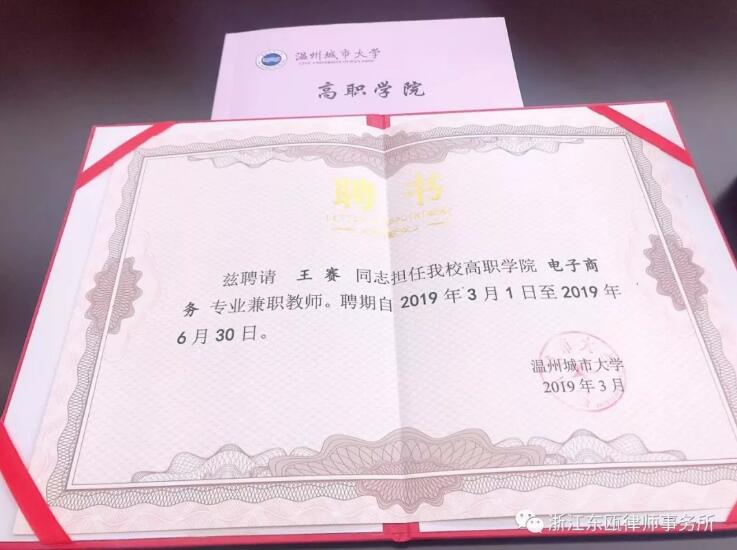 温州城市大学
CITY UNIVERSITY OF WENZHOU
高职学院
聘书
LETTER OF APPOINTMENT
兹聘请 王赛 同志担任我校高职学院 电子商
务 专业兼职教师。聘期自 2019 年 3 月 1 日至 2019 年
6 月 30 日。
温州城市大学
2019 年 3 月
浙江东瓯律师事务所